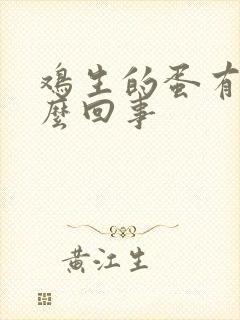 鸡生的蛋有
麼回事
黄江生